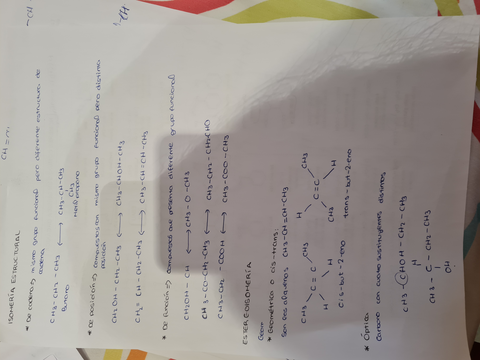 ISOMERÍA ESTRUCTURAL
* De cadena => mismo grupo funcional pero diferente estructura de
cadena
CH3-CH2-CH2-CH3 <-> CH3-CH-CH3
CH3
Butano Metilpropano
* De posición => compuestos con mismo grupo funcional pero distinta
posición
CH2OH-CH2-CH3 <-> CH3-CHOH-CH3
CH2=CH-CH2-CH3 <-> CH3-CH=CH-CH3
* De función => compuestos que presentan diferente grupo funcional
CH3-CO-CH2-CH3 <-> CH3-CH2-CH2-CHO
CH3-CH2-COOH <-> CH3-COO-CH3
ESTEREOISOMERÍA
Geom
* Geométrica o cis-trans.
Son los alquenos CH3-CH=CH-CH3
CH3 CH3 H CH3
C=C C=C
H H CH3 H
Cis-but-2-eno trans-but-2-eno
* Óptica:
Carbono con cuatro sustituyentes distintos
CH3-CHOH-CH2-CH3
H
CH3-C-CH2-CH3
OH